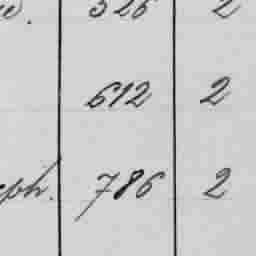 526 2
612 2
ph. 786 2